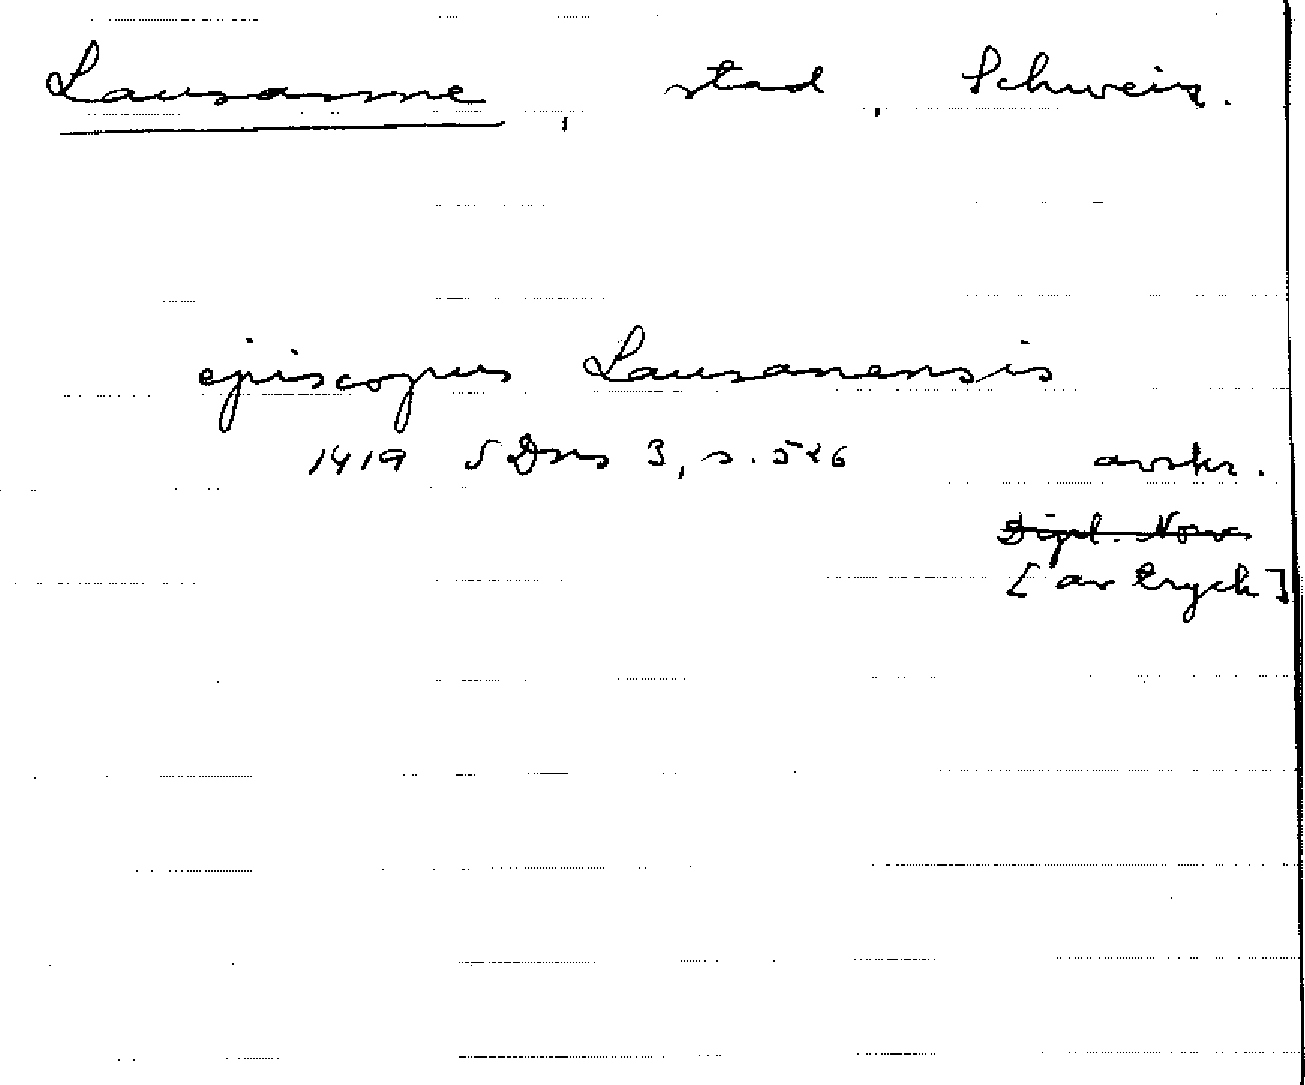 Lausanne, stad, Schweiz.
episcopus Lausanensis
1419 SDns 3, s. 526 avskr.
Dipl. Norv
[av tryck]